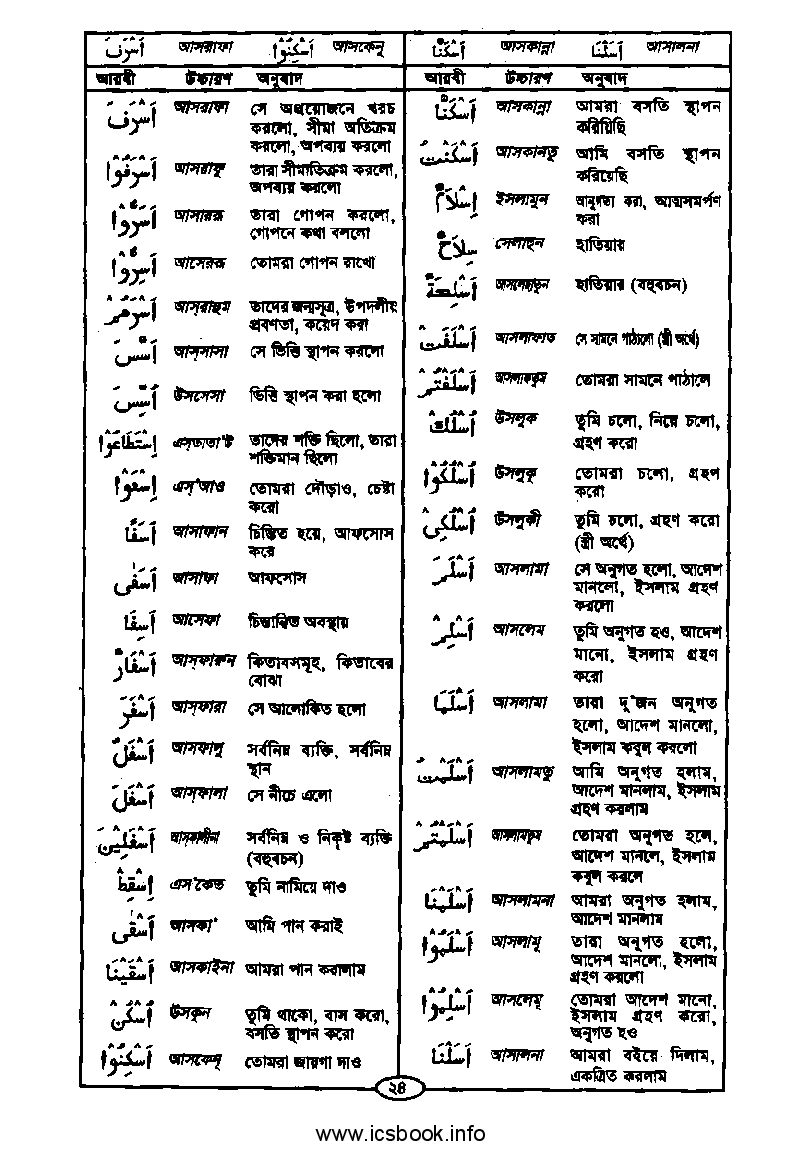 اَسْرَفَ আসরাফা اَسْكِنُوْا আসকেনু
আরবী উচ্চারণ অনুবাদ
اَسْرَفَ আসরাফা সে অপ্রয়োজনে খরচ
করলো, সীমা অতিক্রম
করলো, অপব্যয় করলো
اَسْرَفُوْا আসরাফু তারা সীমাতিক্রম করলো,
অপব্যয় করলো
اَسَرُّوْا আসাররু তারা গোপন করলো,
গোপনে কথা বললো
اَسِرُّوْا আসেররু তোমরা গোপন রাখো
اَسْرَهُمْ আস্‌রাহুম তাদের জন্মসূত্র, উপদলীয়
প্রবণতা, কয়েদ করা
اَسَّسَ আস্‌সাসা সে ভিত্তি স্থাপন করলো
اُسِّسَ উসসেসা ভিত্তি স্থাপন করা হলো
اِسْتَطَاعُوْا এস্‌তাতা'উ তাদের শক্তি ছিলো, তারা
শক্তিমান ছিলো
اِسْعَوْا এস্‌'আও তোমরা দৌড়াও, চেষ্টা
করো
اَسَفًا আসাফান চিন্তিত হয়ে, আফসোস
করে
اَسَفٰى আসাফা আফসোস
اَسِفًا আসেফা চিন্তান্বিত অবস্থায়
اَسْفَارٌ আস্‌ফারুন কিতাবসমূহ, কিতাবের
বোঝা
اَسْفَرَ আস্‌ফারা সে আলোকিত হলো
اَسْفَلُ আস্‌ফালু সর্বনিম্ন ব্যক্তি, সর্বনিম্ন
স্থান
اَسْفَلَ আস্‌ফালা সে নীচে এলো
اَسْفَلِيْنَ আস্‌ফালীনা সর্বনিম্ন ও নিকৃষ্ট ব্যক্তি
(বহুবচন)
اِسْقِطْ এস'কেত তুমি নামিয়ে দাও
اَسْقٰى আসকা' আমি পান করাই
اَسْقَيْنَا আসকাইনা আমরা পান করালাম
اُسْكُنْ উসকুন তুমি থাকো, বাস করো,
বসতি স্থাপন করো
اَسْكِنُوْا আসকেনু তোমরা জায়গা দাও
اَسْكَنَّا আসকান্না اَسَلْنَا আসালনা
আরবী উচ্চারণ অনুবাদ
اَسْكَنَّا আসকান্না আমরা বসতি স্থাপন
করিয়িছি
اَسْكَنْتُ আসকানতু আমি বসতি স্থাপন
করিয়েছি
اِسْلَامٌ ইসলামুন আনুগত্য করা, আত্মসমর্পণ
করা
سِلَاحٌ সেলাহুন হাতিয়ার
اَسْلِحَةٌ আসলেহাতুন হাতিয়ার (বহুবচন)
اَسْلَفَتْ আসলাফাত সে সামনে পাঠালো (স্ত্রী অর্থে)
اَسْلَفْتُمْ আসলাফতুম তোমরা সামনে পাঠালে
اُسْلُكْ উসলুক তুমি চলো, নিয়ে চলো,
গ্রহণ করো
اُسْلُكُوْا উসলুকু তোমরা চলো, গ্রহণ
করো
اُسْلُكِىْ উসলুকী তুমি চলো, গ্রহণ করো
(স্ত্রী অর্থে)
اَسْلَمَ আসলামা সে অনুগত হলো, আদেশ
মানলো, ইসলাম গ্রহণ
করলো
اَسْلِمْ আসলেম তুমি অনুগত হও, আদেশ
মানো, ইসলাম গ্রহণ
করো
اَسْلَمَا আসলামা তারা দু'জন অনুগত
হলো, আদেশ মানলো,
ইসলাম কবুল করলো
اَسْلَمْتُ আসলামতু আমি অনুগত হলাম,
আদেশ মানলাম, ইসলাম
গ্রহণ করলাম
اَسْلَمْتُمْ আসলামতুম তোমরা অনুগত হলে,
আদেশ মানলে, ইসলাম
কবুল করলে
اَسْلَمْنَا আসলামনা আমরা অনুগত হলাম,
আদেশ মানলাম
اَسْلَمُوْا আসলামু তারা অনুগত হলো,
আদেশ মানলো, ইসলাম
গ্রহণ করলো
اَسْلِمُوْا আসলেমু তোমরা আদেশ মানো,
ইসলাম গ্রহণ করো,
অনুগত হও
اَسَلْنَا আসালনা আমরা বইয়ে দিলাম,
একত্রিত করলাম
২৪
www.icsbook.info